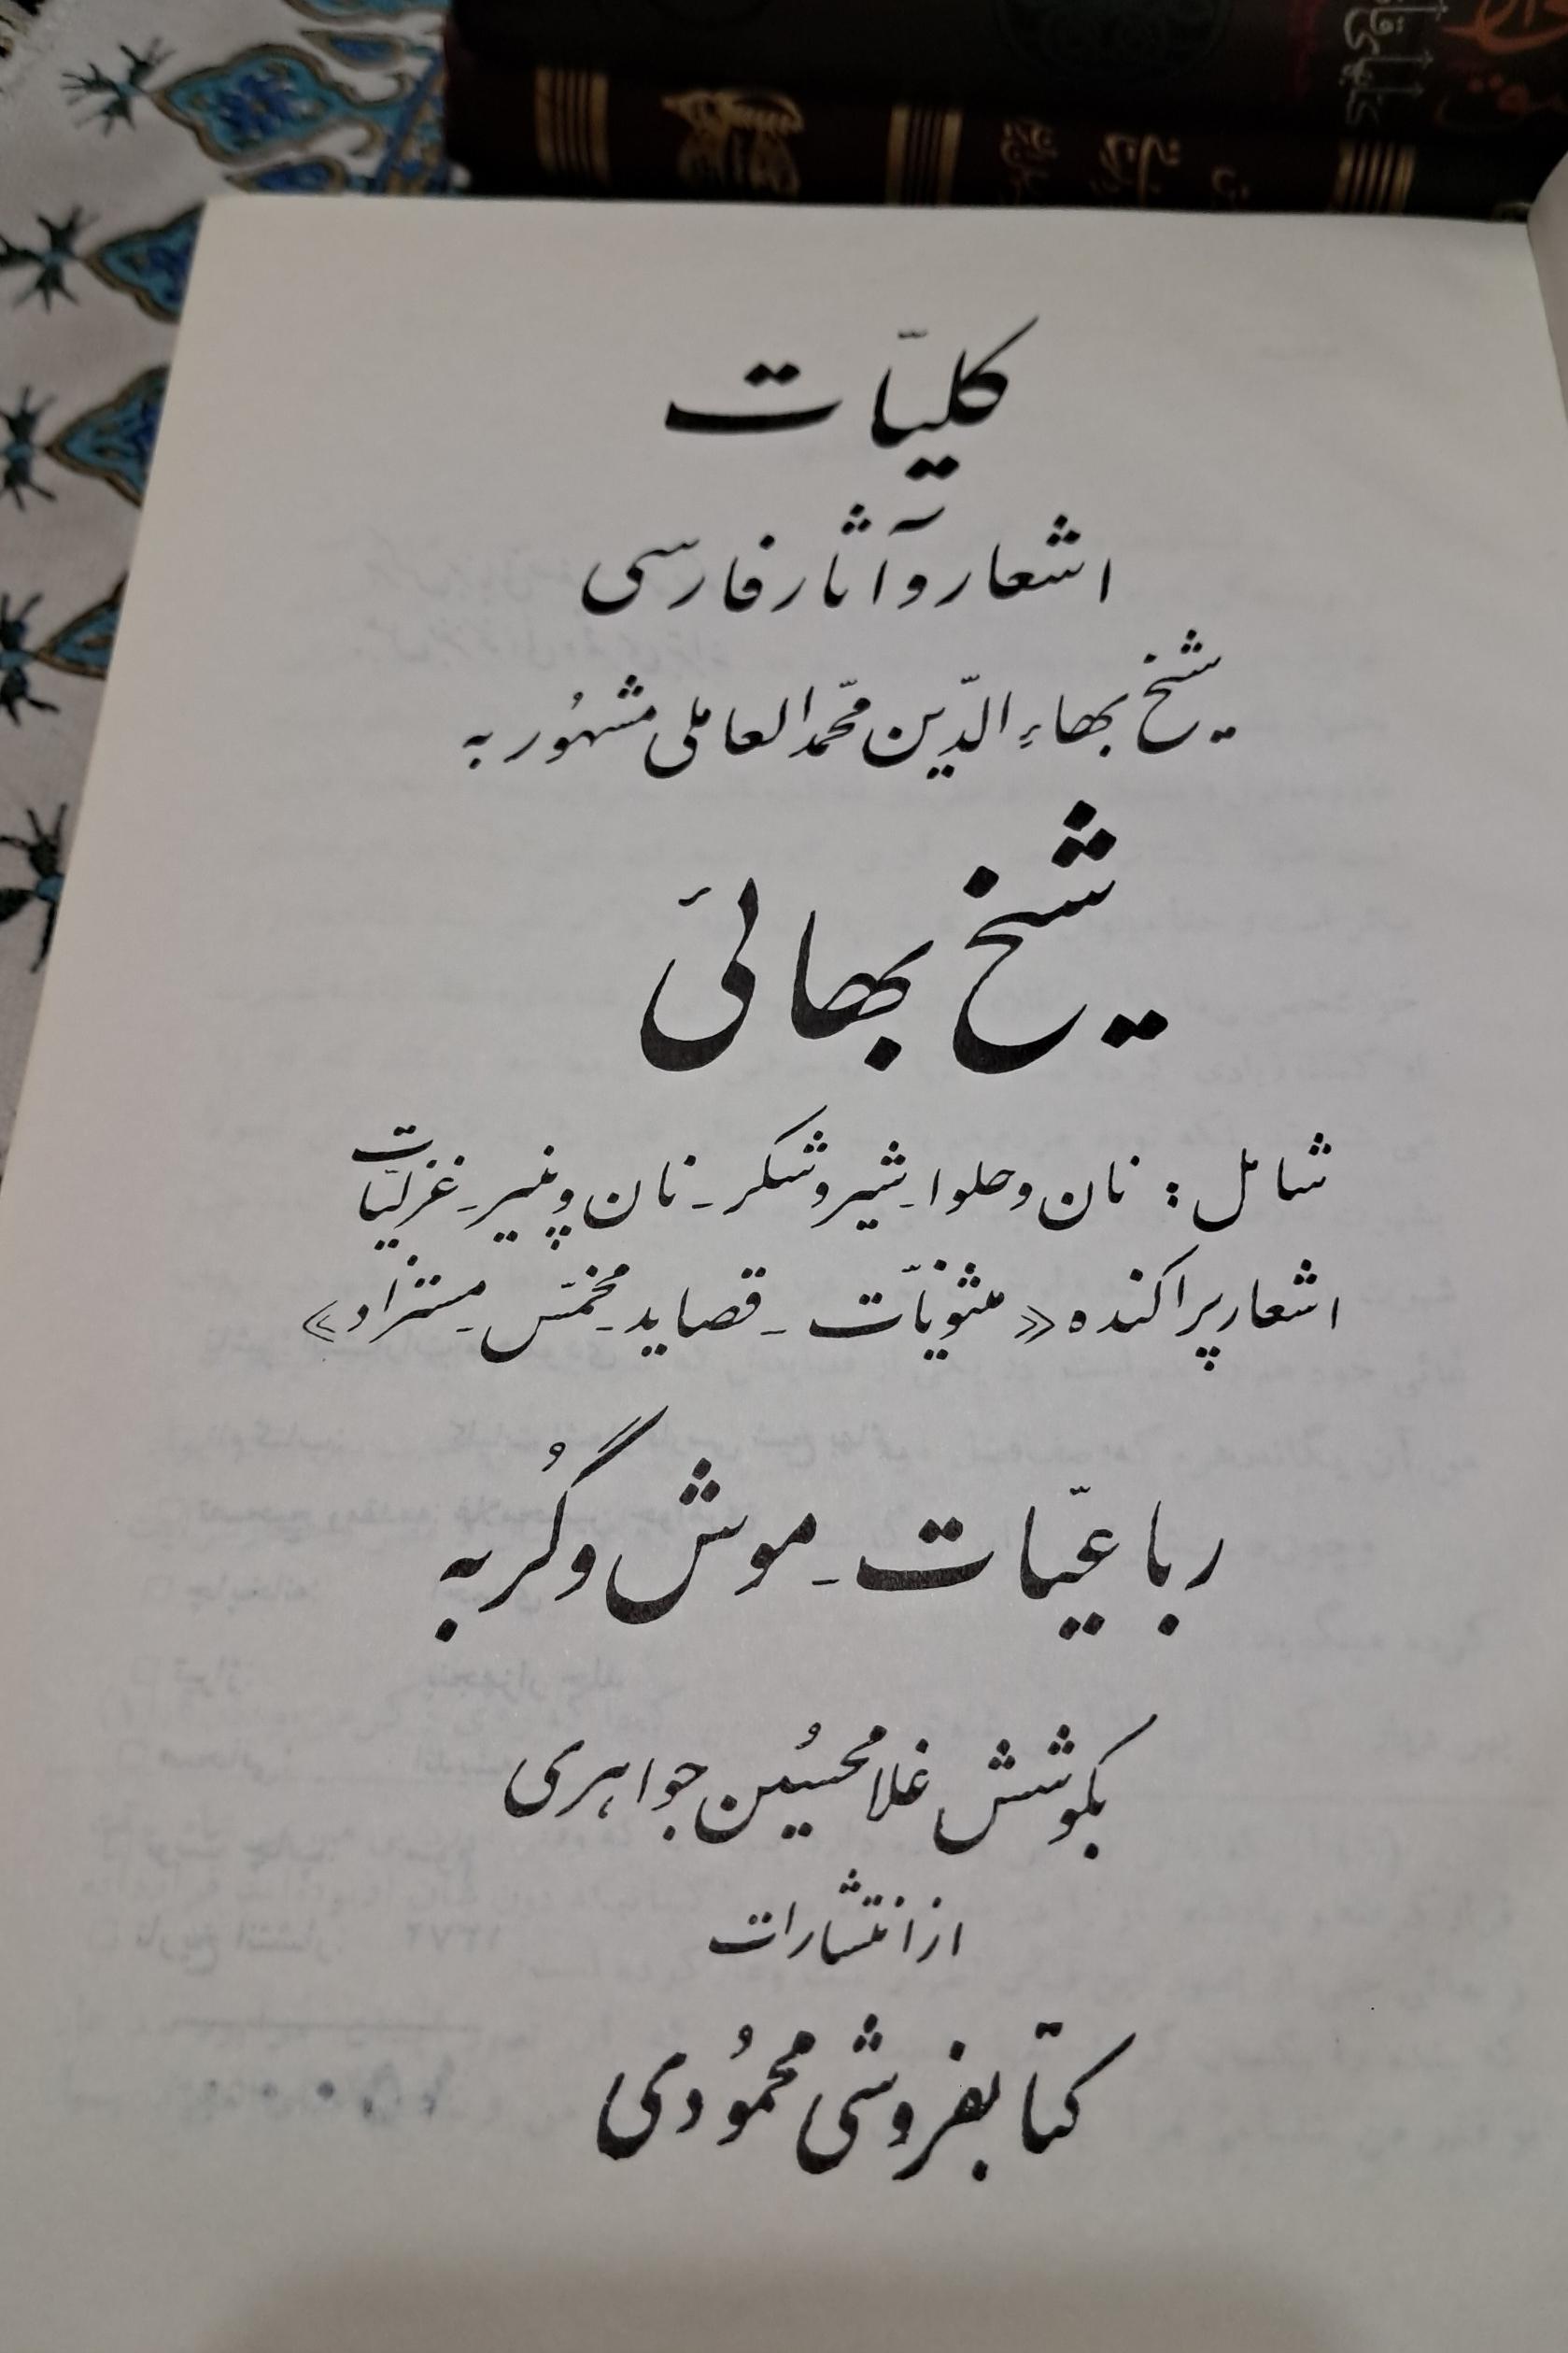 کلیّات
اشعار و آثار فارسی
شیخ بهاءِ الدّین محمّد العاملی مشهُور به
شیخ بهائی
شامل : نان و حلوا ـ شیر و شکر ـ نان و پنیر ـ غزلیّات
اشعار پراکنده « مثنویّات ـ قصاید ـ مخمّس ـ مستزاد »
رباعیّات ـ موش و گُربه
بکوشش غلامحسُین جواهری
از انتشارات
کتابفروشی محمُودی